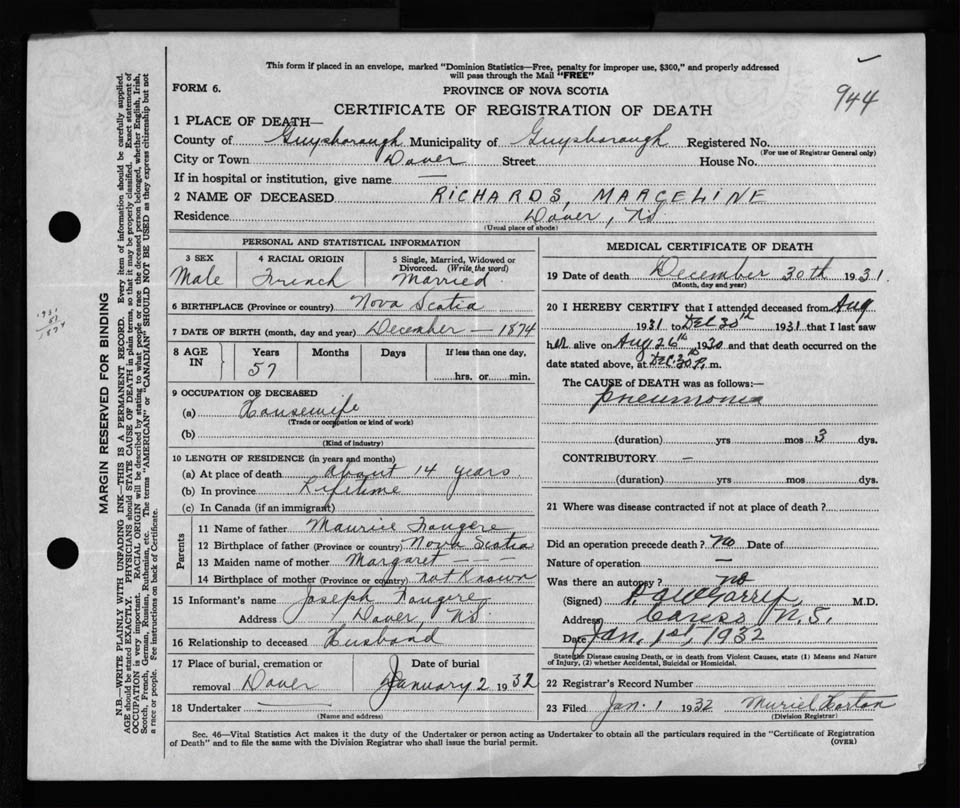 This form if placed in an envelope, marked "Dominion Statistics—Free, penalty for improper use, $300," and properly addressed
will pass through the Mail "FREE"
944
FORM 6.
PROVINCE OF NOVA SCOTIA
CERTIFICATE OF REGISTRATION OF DEATH
1 PLACE OF DEATH—
County of Guysborough Municipality of Guysborough Registered No.
(For use of Registrar General only)
City or Town Dover Street House No.
If in hospital or institution, give name —
2 NAME OF DECEASED RICHARDS, MARCELINE
Residence Dover, NS
(Usual place of abode)
PERSONAL AND STATISTICAL INFORMATION
3 SEX Male
4 RACIAL ORIGIN French
5 Single, Married, Widowed or Divorced. (Write the word) Married
6 BIRTHPLACE (Province or country) Nova Scotia
7 DATE OF BIRTH (month, day and year) December — 1874
8 AGE IN Years 57 Months Days If less than one day, hrs. or min.
9 OCCUPATION OF DECEASED
(a) Housewife
(Trade or occupation or kind of work)
(b)
(Kind of industry)
10 LENGTH OF RESIDENCE (in years and months)
(a) At place of death about 14 years
(b) In province Lifetime
(c) In Canada (if an immigrant)
Parents
11 Name of father Maurice Fougere
12 Birthplace of father (Province or country) Nova Scotia
13 Maiden name of mother Margaret — —
14 Birthplace of mother (Province or country) not Known
15 Informant's name Joseph Fougere
Address Dover, NS
16 Relationship to deceased Husband
17 Place of burial, cremation or removal Dover
Date of burial January 2 1932
18 Undertaker —
(Name and address)
MEDICAL CERTIFICATE OF DEATH
19 Date of death December 30th 1931
(Month, day and year)
20 I HEREBY CERTIFY that I attended deceased from Aug
1931 to Dec 30th 1931 that I last saw
h alive on Aug 26th 1930 and that death occurred on the
date stated above, at Dec. 30 P. m.
The CAUSE of DEATH was as follows:—
pneumonia
(duration) yrs mos 3 dys.
CONTRIBUTORY —
(duration) yrs mos dys.
21 Where was disease contracted if not at place of death?
Did an operation precede death? no Date of
Nature of operation —
Was there an autopsy? no
(Signed) M.D.
Address Canso N.S.
Date Jan. 1st, 1932
State the Disease causing Death, or in death from Violent Causes, state (1) Means and Nature
of Injury, (2) whether Accidental, Suicidal or Homicidal.
22 Registrar's Record Number
23 Filed Jan. 1 1932 Muriel Horton
(Division Registrar)
Sec. 46—Vital Statistics Act makes it the duty of the Undertaker or person acting as Undertaker to obtain all the particulars required in the "Certificate of Registration
of Death" and to file the same with the Division Registrar who shall issue the burial permit.
(OVER)
MARGIN RESERVED FOR BINDING
N.B.—WRITE PLAINLY WITH UNFADING INK—THIS IS A PERMANENT RECORD. Every item of information should be carefully supplied.
AGE should be stated EXACTLY. PHYSICIANS should STATE CAUSE OF DEATH in plain terms, so that it may be properly classified. Exact statement of
OCCUPATION is very important. RACIAL ORIGIN will be described by stating to what people or race the deceased person belonged, whether English, Irish,
Scotch, French, German, Russian, Ruthenian, etc. The terms "AMERICAN" or "CANADIAN" SHOULD NOT BE USED as they express citizenship but not
a race or people. Fee instructions on back of Certificate.
1931
57
1874